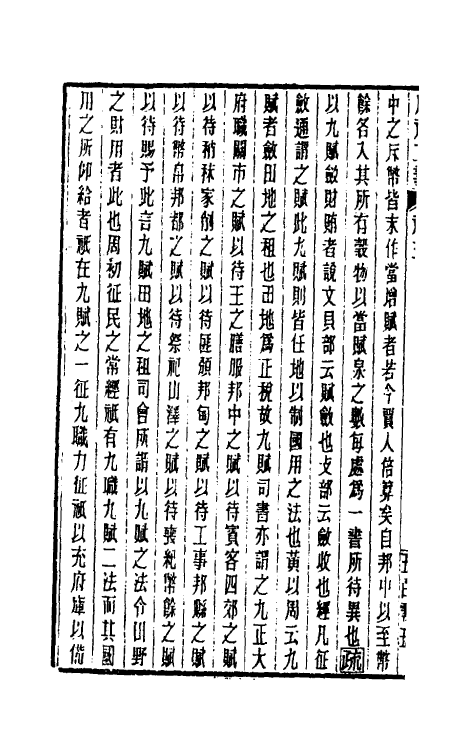 中之斥幣皆末作當增賦者若今賈人倍算矣自邦中以至幣
餘各入其所有穀物以當賦泉之數每處爲一書所待異也疏
以九賦斂財賄者說文貝部云賦斂也攴部云斂收也經凡征
斂通謂之賦此九賦則皆任地以制國用之法也黃以周云九
賦者斂田地之租也田地爲正稅故九賦司書亦謂之九正大
府職關市之賦以待王之膳服邦中之賦以待賓客四郊之賦
以待稍秣家削之賦以待匪頒邦甸之賦以待工事邦縣之賦
以待幣帛邦都之賦以待祭祀山澤之賦以待喪紀幣餘之賦
以待賜予此言九賦田地之租司會所謂以九賦之法令田野
之財用者此也周初征民之常經祇有九職九賦二法而其國
用之所仰給者祇在九賦之一征九職力征祇以充府庫以備